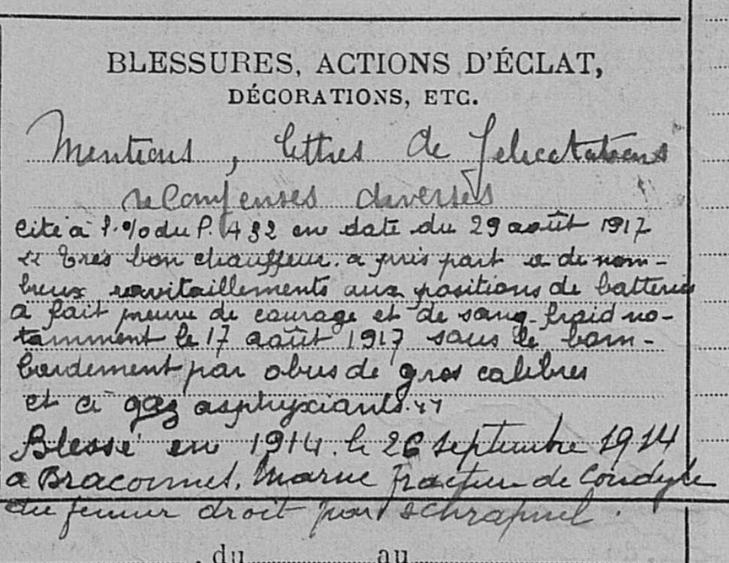 BLESSURES, ACTIONS D'ÉCLAT,
DÉCORATIONS, ETC.
Mentions, lettres de felicitations
recompenses diverses
Cité à l'o/o du P. 432 en date du 29 août 1917
" Très bon chauffeur a pris part a de nom-
breux ravitaillements aux positions de batteries
a fait preuve de courage et de sang-froid no-
tamment le 17 août 1917 sous le bom-
bardement par obus de gros calibres
et à gaz asphyxiants. "
Blessé en 1914. le 26 Septembre 1914
a Braconnes, Marne fracture de Condyle
du femur droit par schrapnel.
du au